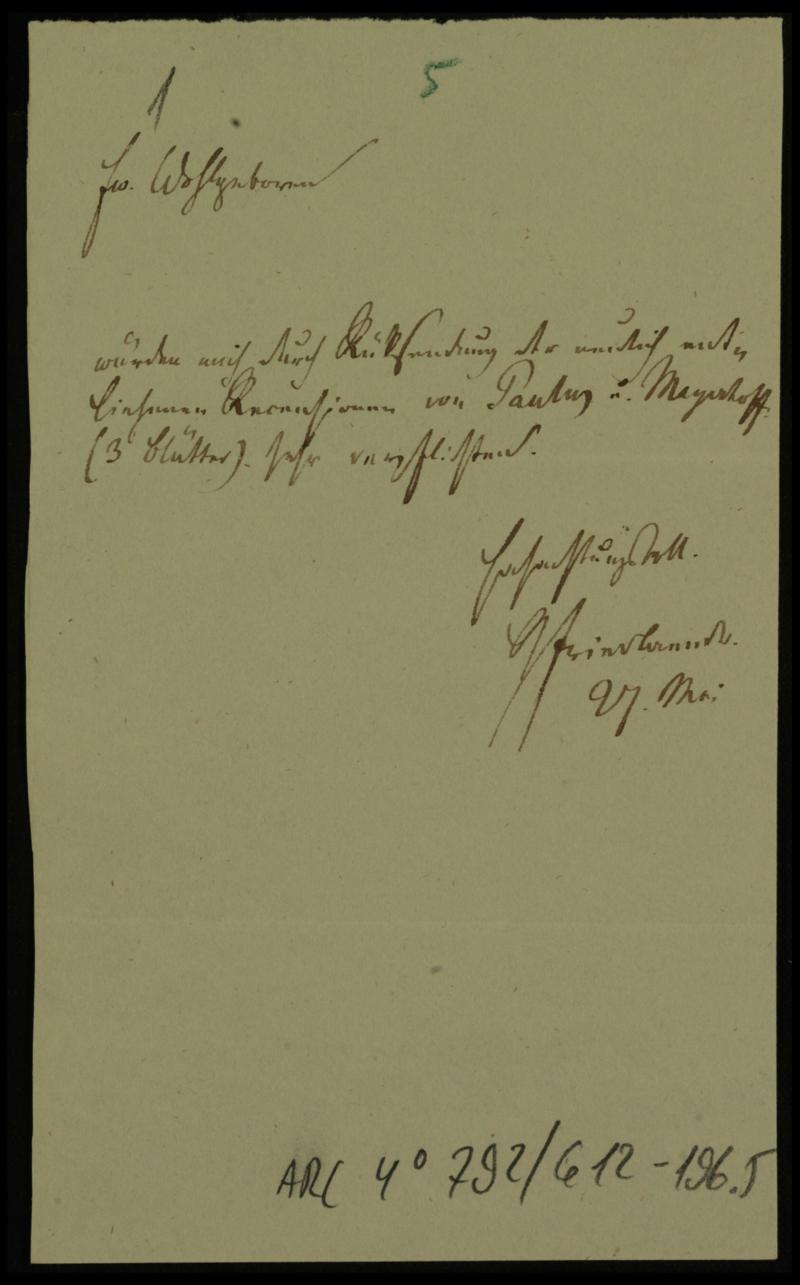 1 5
Ew. Wohlgeboren
würden mich durch Rüksendung der neulich ent-
liehenen Recensionen von Paulus u. Mayerhoff
(3 Blätter) sehr verpflichten.
Hochachtungsvoll.
Friedlaender.
27. Mai
ARC 4° 792/G12-196.5